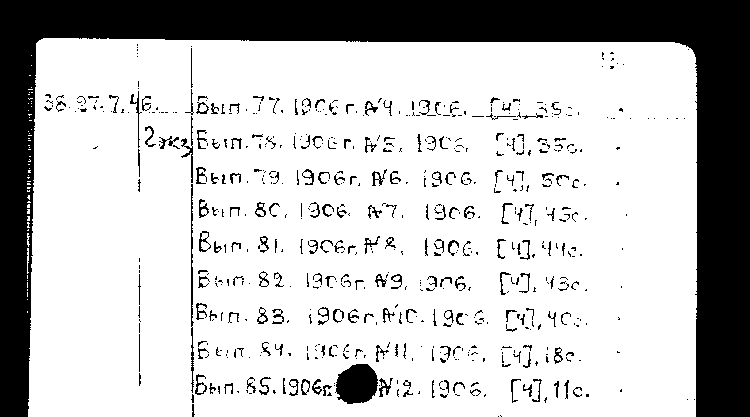 13.
38.27.7.46. Вып. 77. 1906 г. №4. 1906. [4], 35с.
2экз Вып. 78. 1906 г. №5. 1906. [4], 35с.
Вып. 79. 1906г. №6. 1906. [4], 50с.
Вып. 80. 1906. №7. 1906. [4], 43с.
Вып. 81. 1906г. №8. 1906. [4], 44с.
Вып. 82. 1906г. №9. 1906. [4], 43с.
Вып. 83. 1906г. №10. 1906. [4], 40с.
Вып. 84. 1906г. №11. 1906. [4], 18с.
Вып. 85. 1906г. №12. 1906. [4], 11с.